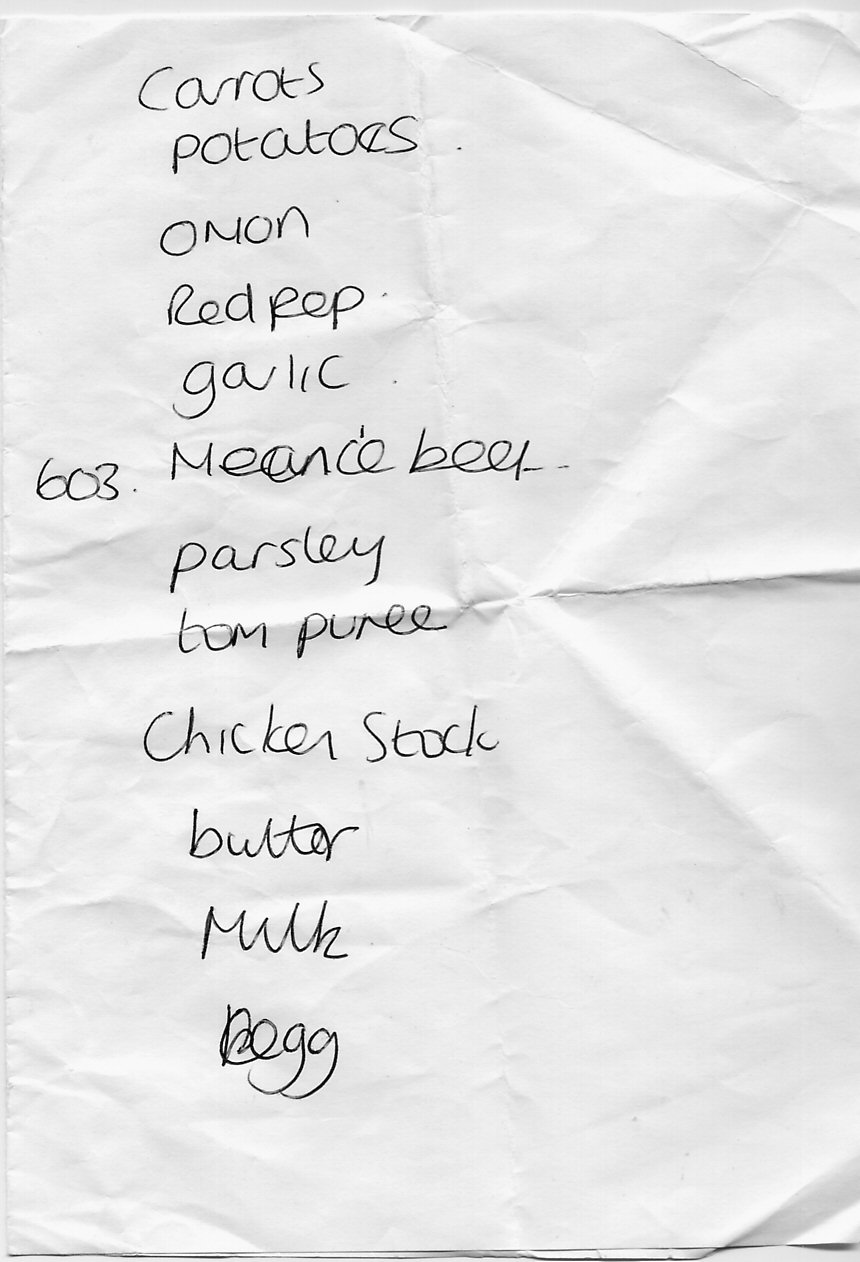 Carrots
potatoes
onion
Red pep.
garlic
603. Meance beef
parsley
tom puree
Chicken Stock
butter
Milk
egg